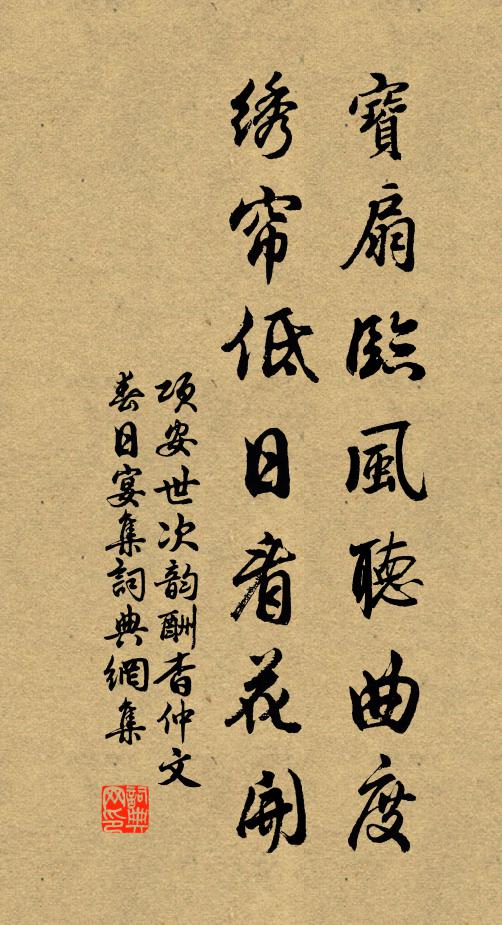 寶扇臨風聽曲度
綉帘低日看花開
項安世次韵酬查仲文
春日宴集詞典網集
詞典網印